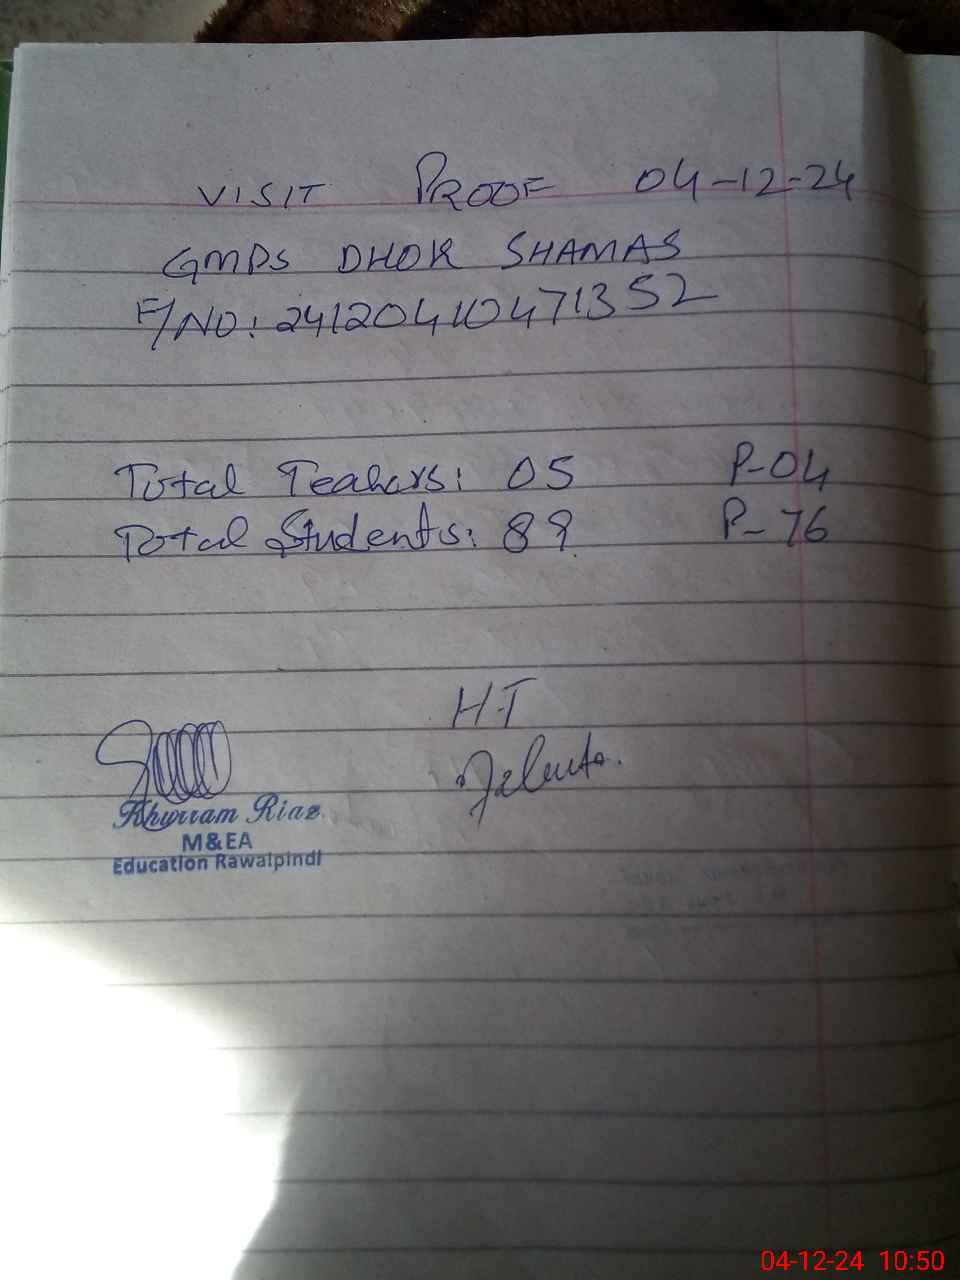 VISIT PROOF 04-12-24
GMPS DHOK SHAMAS
F/NO: 24120410471352
Total Teahers: 05 P-04
Total Students: 89 P-76
H-T
Khurram Riaz
M&EA
Education Rawalpindi
04-12-24 10:50